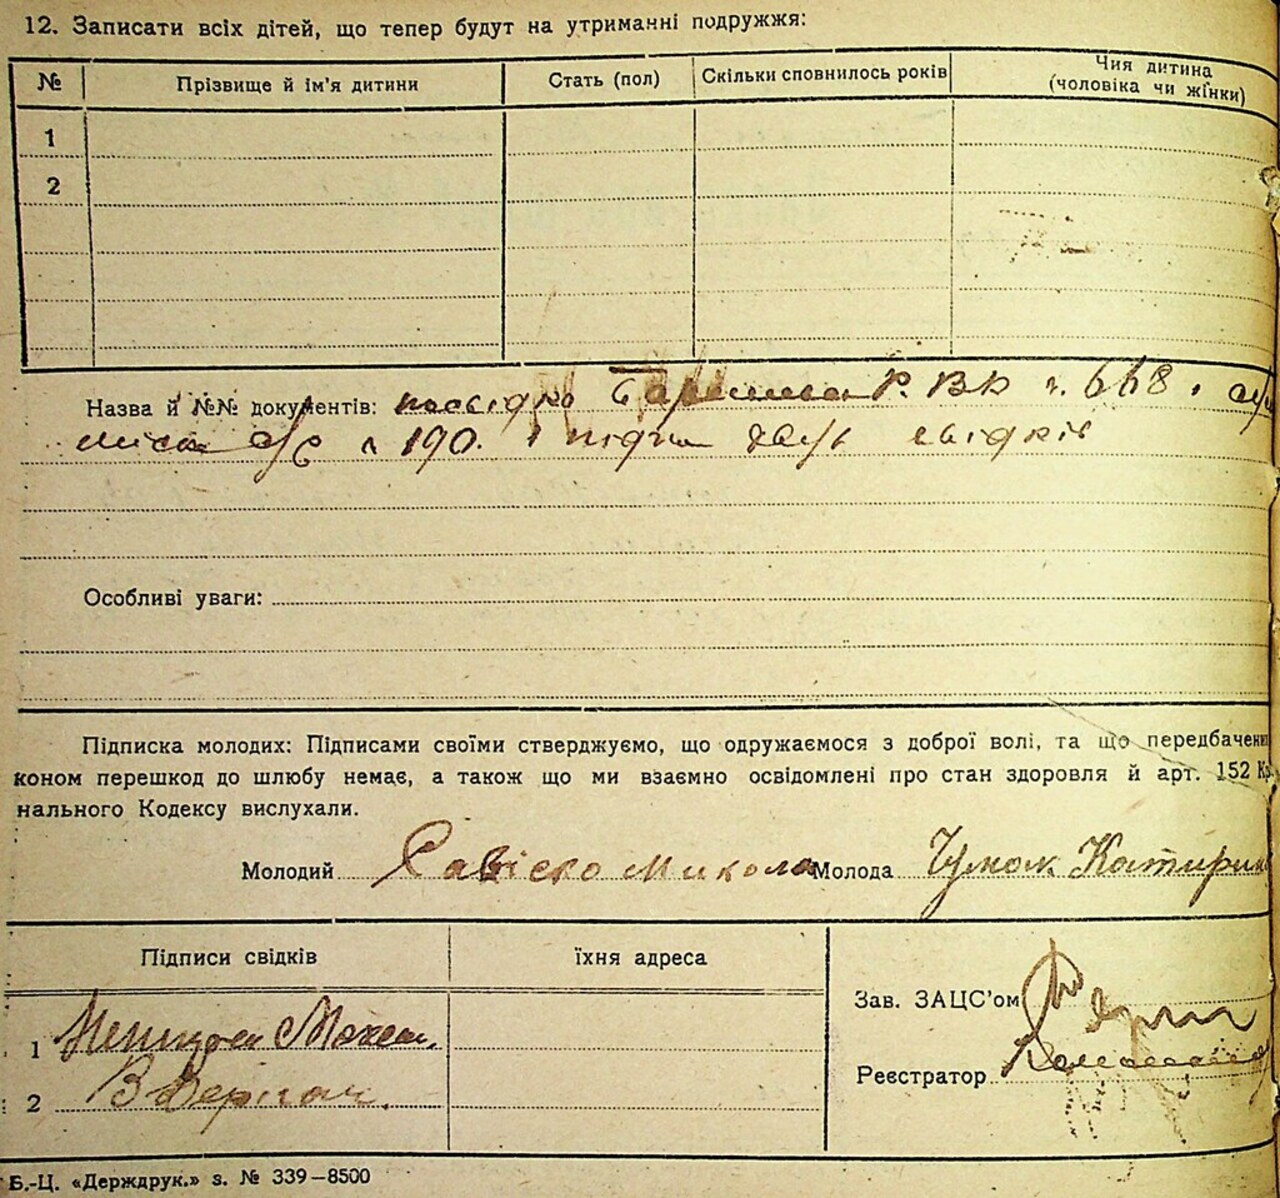 12. Записати всіх дітей, що тепер будут на утриманні подружжя:
№ Прізвище й ім'я дитини Стать (пол) Скільки сповнилось років Чия дитина
(чоловіка чи жінки)
1
2
Назва й №№ документів: посвідка Р. В К 668 і
190. і підпи двух свідків
Особливі уваги:
Підписка молодих: Підписами своїми стверджуємо, що одружаємося з доброї волі, та що передбачени
коном перешкод до шлюбу немає, а також що ми взаємно освідомлені про стан здоровля й арт. 152 К
нального Кодексу вислухали.
Молодий Савіско Микола Молода Чумак Катирина
Підписи свідків їхня адреса
Зав. ЗАЦС'ом
1
Реєстратор
2 В Деркач.
Б.-Ц. «Держдрук.» з. № 339—8500